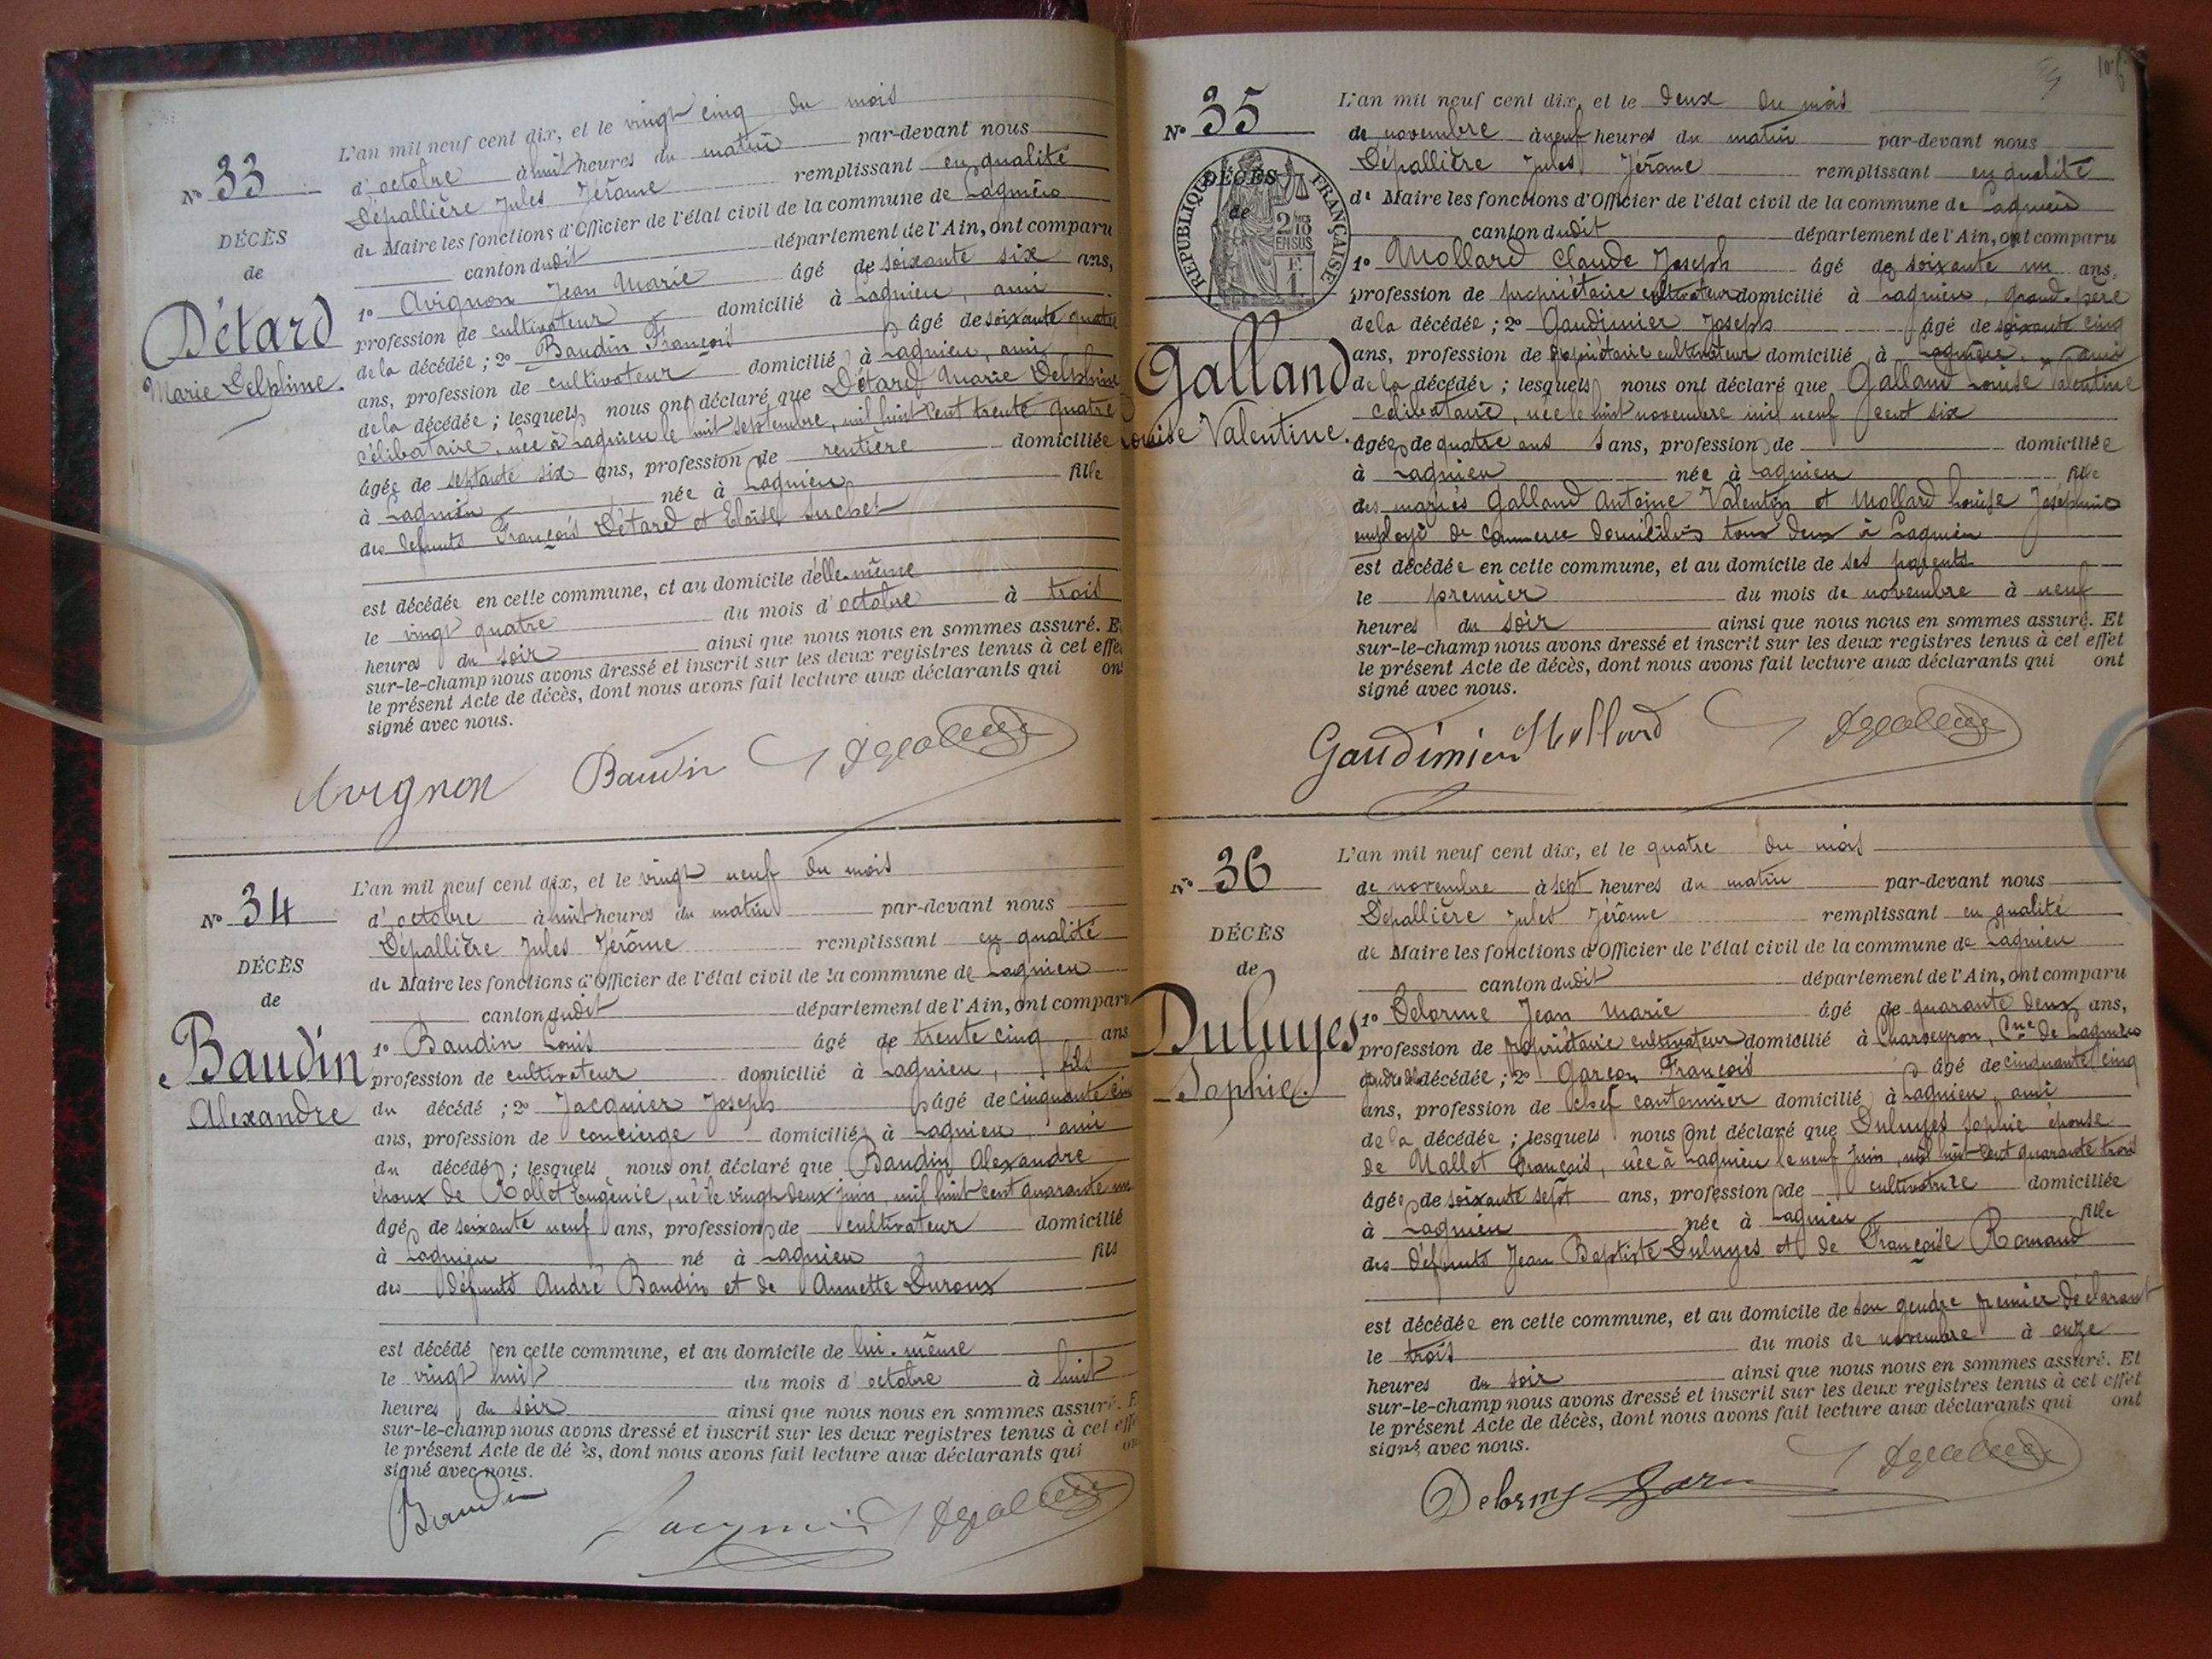 N° 33
DÉCÈS
de
Détard
Marie Delphine.
L'an mil neuf cent dix, et le vingt cinq du mois
d'octobre à huit heures du matin par-devant nous
Dépallière Jules Jérôme remplissant en qualité
de Maire les fonctions d'Officier de l'état civil de la commune de Lagnieu
canton dudit département de l'Ain, ont comparu
1° Avignon Jean Marie âgé de soixante six ans,
profession de cultivateur domicilié à Lagnieu, ami
de la décédée; 2° Baudin François âgé de soixante quatre
ans, profession de cultivateur domicilié à Lagnieu, ami
de la décédée; lesquels nous ont déclaré que Détard Marie Delphine
célibataire, née à Lagnieu le huit septembre, mil huit cent trente quatre
âgée de septante six ans, profession de rentière domiciliée
à Lagnieu née à Lagnieu fille
des défunts François Détard et Eloïse Suchet
est décédée en cette commune, et au domicile d'elle-même
le vingt quatre du mois d'octobre à trois
heures du soir ainsi que nous nous en sommes assuré. Et
sur-le-champ nous avons dressé et inscrit sur les deux registres tenus à cet effet
le présent Acte de décès, dont nous avons fait lecture aux déclarants qui ont
signé avec nous.
Avignon Baudin Depallière
N° 34
DÉCÈS
de
Baudin
Alexandre
L'an mil neuf cent dix, et le vingt neuf du mois
d'octobre à huit heures du matin par-devant nous
Dépallière Jules Jérôme remplissant en qualité
de Maire les fonctions d'Officier de l'état civil de la commune de Lagnieu
canton dudit département de l'Ain, ont comparu
1° Baudin Louis âgé de trente cinq ans
profession de cultivateur domicilié à Lagnieu, fils
du décédé; 2° Jacquier Joseph âgé de cinquante cinq
ans, profession de concierge domicilié à Lagnieu, ami
du décédé; lesquels nous ont déclaré que Baudin Alexandre
époux de Rollet Eugénie, né le vingt deux juin, mil huit cent quarante un
âgé de soixante neuf ans, profession de cultivateur domicilié
à Lagnieu né à Lagnieu fils
des défunts André Baudin et de Annette Duroux
est décédé en cette commune, et au domicile de lui-même
le vingt huit du mois d'octobre à huit
heures du soir ainsi que nous nous en sommes assuré. Et
sur-le-champ nous avons dressé et inscrit sur les deux registres tenus à cet effet
le présent Acte de décès, dont nous avons fait lecture aux déclarants qui ont
signé avec nous.
Baudin Jacquier Depallière
N° 35
DÉCÈS
de
RÉPUBLIQUE FRANÇAISE
2/10
EN SUS
Galland
Louise Valentine.
L'an mil neuf cent dix, et le deux du mois
de novembre à neuf heures du matin par-devant nous
Dépallière Jules Jérôme remplissant en qualité
de Maire les fonctions d'Officier de l'état civil de la commune de Lagnieu
canton dudit département de l'Ain, ont comparu
1° Mollard Claude Joseph âgé de soixante un ans,
profession de propriétaire cultivateur domicilié à Lagnieu, grand-père
de la décédée; 2° Gaudimier Joseph âgé de soixante cinq
ans, profession de propriétaire cultivateur domicilié à Lagnieu, ami
de la décédée; lesquels nous ont déclaré que Galland Louise Valentine
célibataire, née le huit novembre mil neuf cent six
âgée de quatre ans ans, profession de domiciliée
à Lagnieu née à Lagnieu fille
des mariés Galland Antoine Valentin et Mollard Louise Josephine
employé de commerce domiciliés tous deux à Lagnieu
est décédée en cette commune, et au domicile de ses parents
le premier du mois de novembre à neuf
heures du soir ainsi que nous nous en sommes assuré. Et
sur-le-champ nous avons dressé et inscrit sur les deux registres tenus à cet effet
le présent Acte de décès, dont nous avons fait lecture aux déclarants qui ont
signé avec nous.
Gaudimier Mollard Depallière
N° 36
DÉCÈS
de
Duluyes
Sophie.
L'an mil neuf cent dix, et le quatre du mois
de novembre à sept heures du matin par-devant nous
Dépallière Jules Jérôme remplissant en qualité
de Maire les fonctions d'Officier de l'état civil de la commune de Lagnieu
canton dudit département de l'Ain, ont comparu
1° Delorme Jean Marie âgé de quarante deux ans,
profession de propriétaire cultivateur domicilié à Charveyron, Cne de Lagnieu
gendre de la décédée; 2° Garçon François âgé de cinquante cinq
ans, profession de chef cantonnier domicilié à Lagnieu, ami
de la décédée; lesquels nous ont déclaré que Duluyes Sophie épouse
de Mallet François, née à Lagnieu le neuf juin, mil huit cent quarante trois
âgée de soixante sept ans, profession de cultivatrice domiciliée
à Lagnieu née à Lagnieu fille
des défunts Jean Baptiste Duluyes et de Françoise Ramand
est décédée en cette commune, et au domicile de son gendre premier déclarant
le trois du mois de novembre à onze
heures du soir ainsi que nous nous en sommes assuré. Et
sur-le-champ nous avons dressé et inscrit sur les deux registres tenus à cet effet
le présent Acte de décès, dont nous avons fait lecture aux déclarants qui ont
signé avec nous.
Delorme Depallière